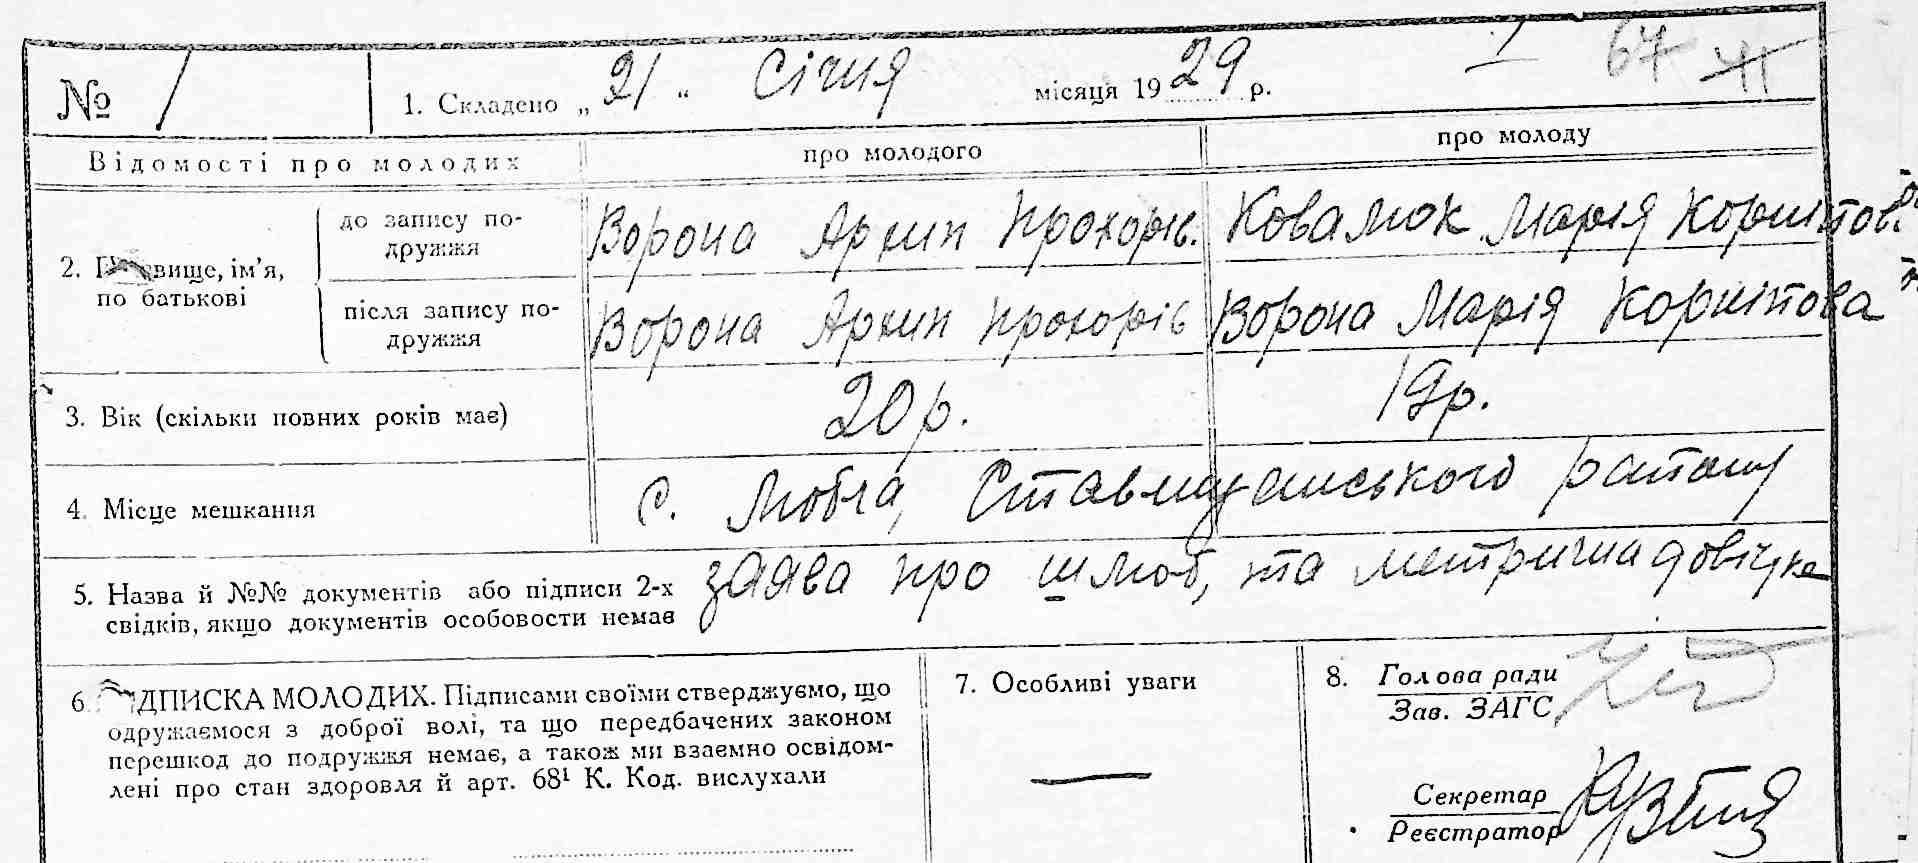 № 1
1. Складено „ 21 " Січня місяця 1929 р.
I 67 41
Відомості про молодих
про молодого
про молоду
2. Прізвище, ім’я, по батькові
до запису по-
дружжя
Ворона Архип Прохорів.
Ковалюк Марія Корнійтов.
після запису по-
дружжя
Ворона Архип Прохорів
Ворона Марія Корнійтова
3. Вік (скільки повних років має)
20 р.
19 р.
4. Місце мешкання
с. Любча, Ставищанського району
5. Назва й №№ документів або підписи 2-х
свідків, якщо документів особовости немає
заява про шлюб, та метрична довідка
6. ПІДПИСКА МОЛОДИХ. Підписами своїми стверджуємо, що
одружаємося з доброї волі, та що передбачених законом
перешкод до подружжя немає, а також ми взаємно освідом-
лені про стан здоровля й арт. 68¹ К. Код. вислухали
7. Особливі уваги
—
8. Голова ради
Зав. ЗАГС
Секретар
Реєстратор